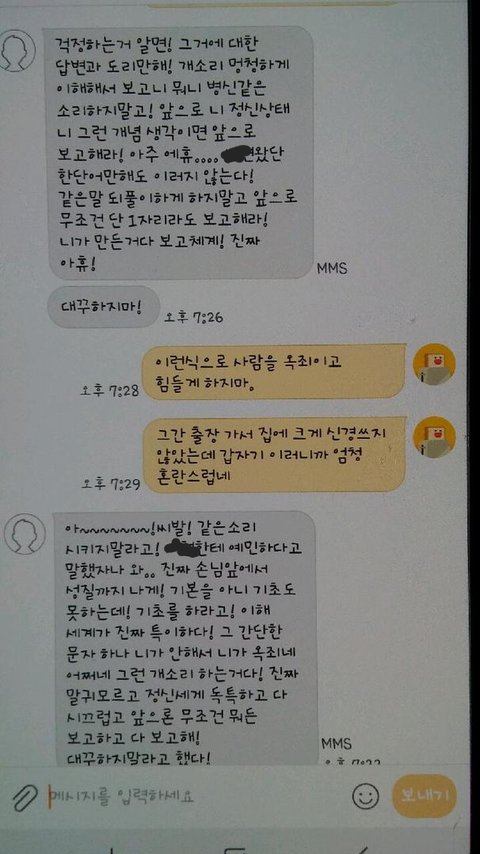 걱정하는거 알면! 그거에 대한
답변과 도리만해! 개소리 멍청하게
이해해서 보고니 뭐니 병신같은
소리하지말고! 앞으로 니 정신상태
니 그런 개념 생각이면 앞으로
보고해라! 아주 에휴.... 왔단
한단어만해도 이러지 않는다!
같은말 되풀이하게 하지말고 앞으로
무조건 단 1자리라도 보고해라!
니가 만든거다 보고체계! 진짜
아휴!
MMS
대꾸하지마!
오후 7:26
이런식으로 사람을 옥죄이고
힘들게 하지마.
오후 7:28
그간 출장 가서 집에 크게 신경쓰지
않았는데 갑자기 이러니까 엄청
혼란스럽네
오후 7:29
아~~~~~~~!씨발! 같은소리
시키지말라고! 한테 예민하다고
말했자나 와.. 진짜 손님앞에서
성질까지 나게! 기본을 아니 기초도
못하는데! 기초를 하라고! 이해
세계가 진짜 특이하다! 그 간단한
문자 하나 니가 안해서 니가 옥죄네
어쩌네 그런 개소리 하는거다! 진짜
말귀모르고 정신세계 독특하고 다
시끄럽고 앞으론 무조건 뭐든
보고하고 다 보고해!
대꾸하지말라고 했다!
MMS
메시지를 입력하세요
보내기